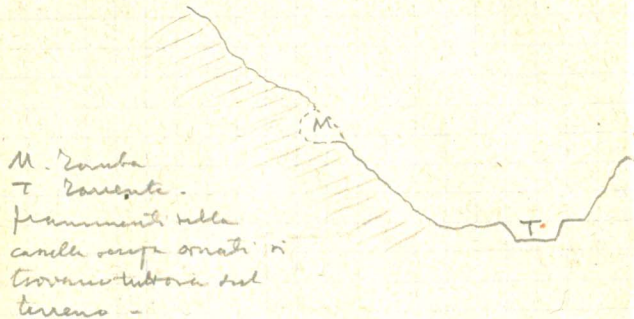 M
T
M. Tomba
T Torrente.
frammenti della
casella senza ornati si
trovano tuttora sul
terreno -